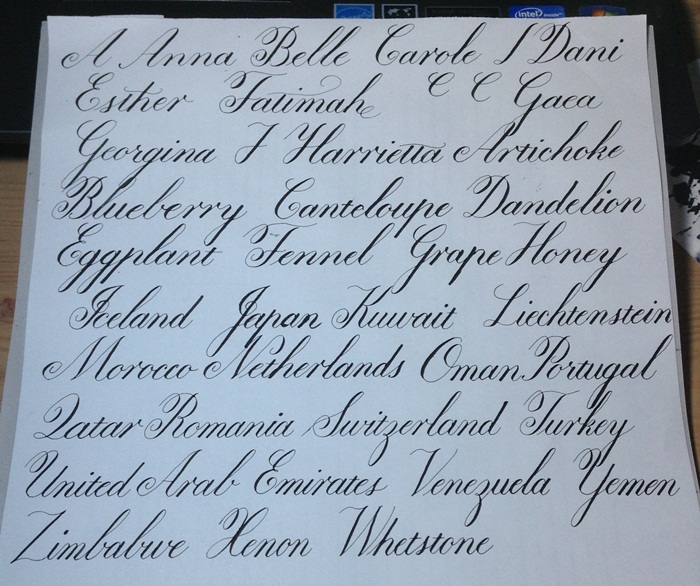 intel
A Anna Belle Carole I Dani
Esther Fatimah C C Gaea
Georgina F Harrietta Artichoke
Blueberry Canteloupe Dandelion
Eggplant Fennel Grape Honey
Iceland Japan Kuwait Liechtenstein
Morocco Netherlands Oman Portugal
Qatar Romania Switzerland Turkey
United Arab Emirates Venezuela Yemen
Zimbabwe Xenon Whetstone